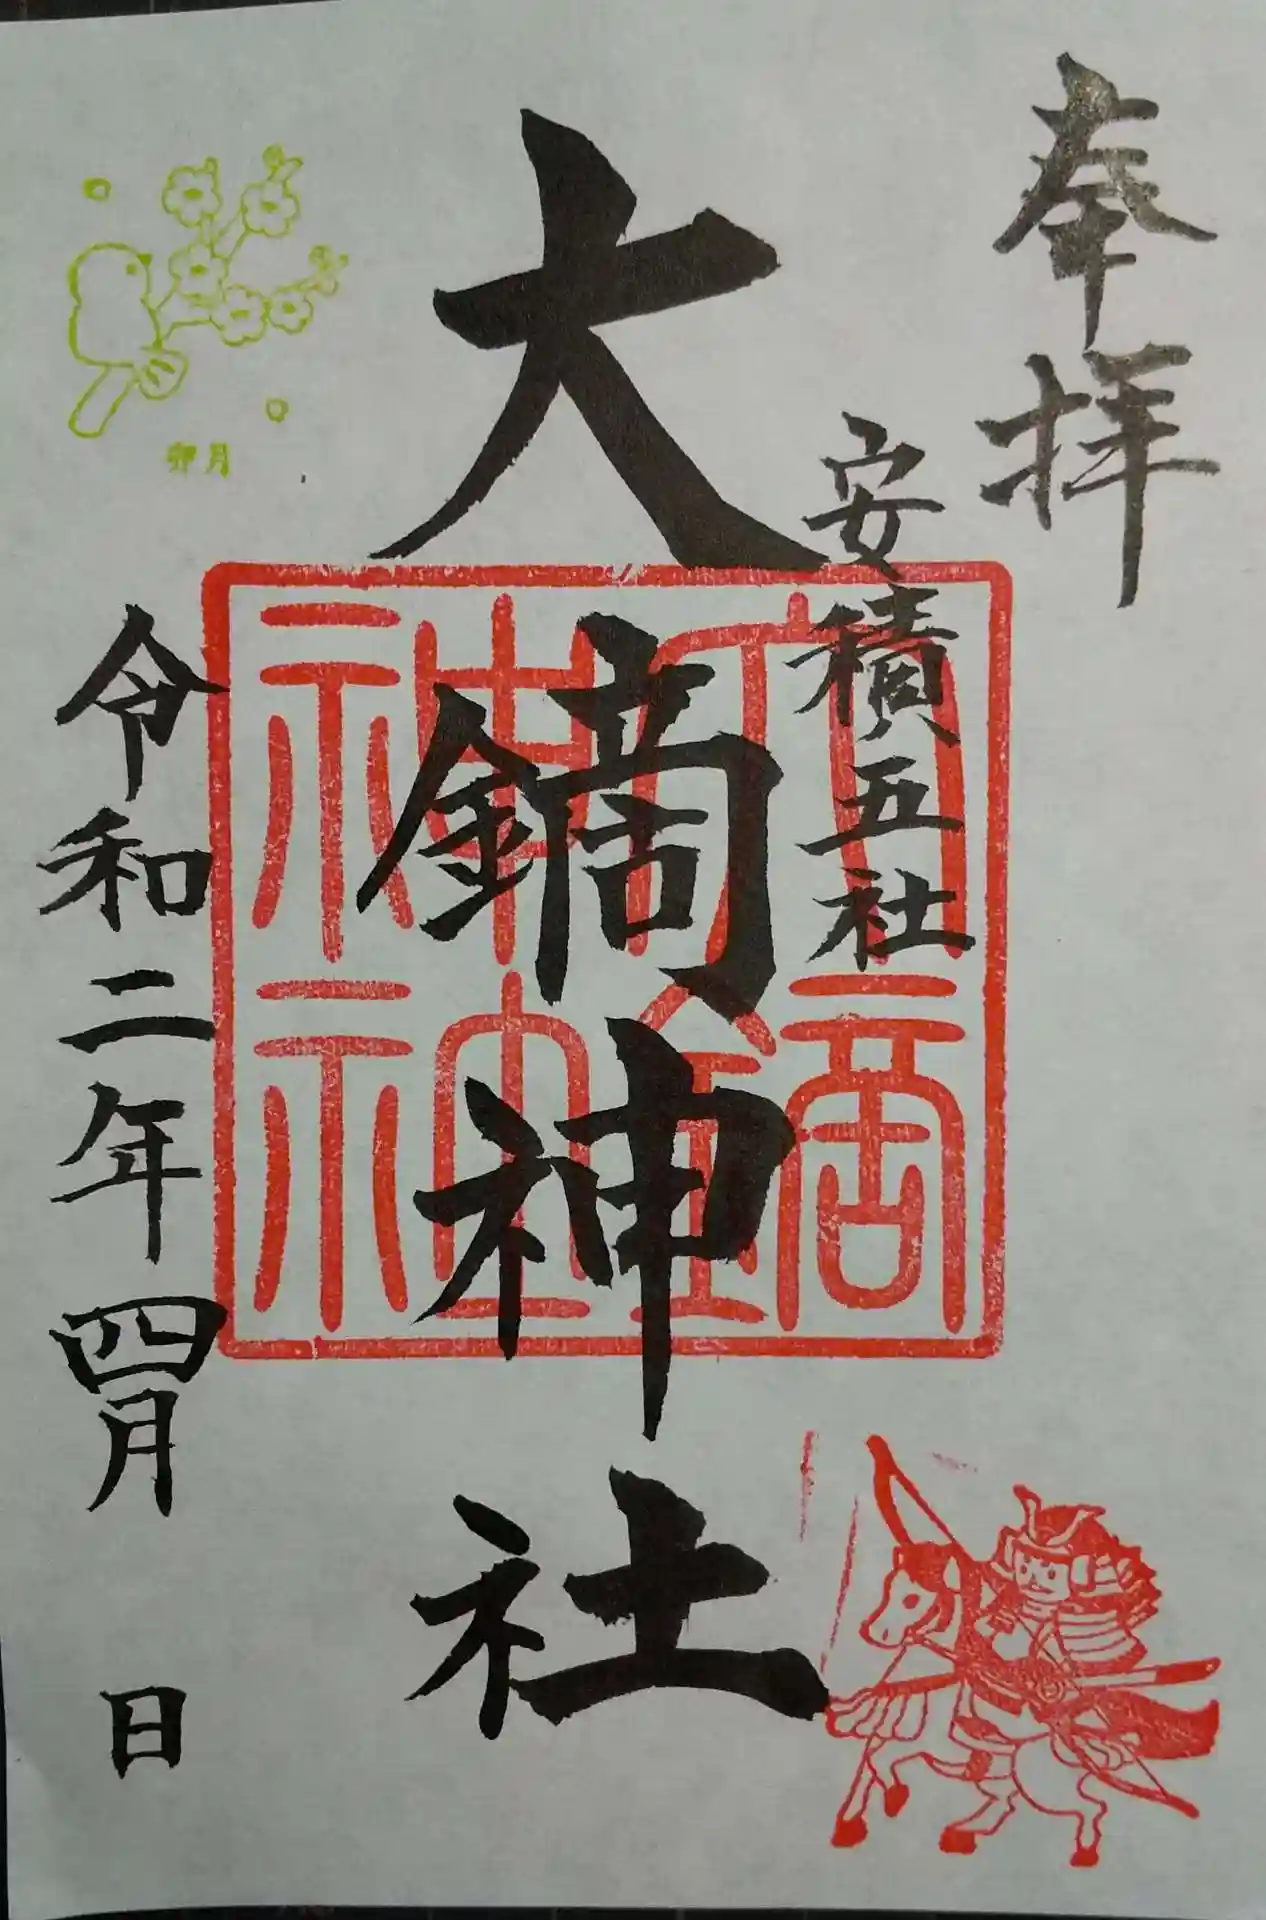 奉拝
安積五社
大鏑神社
大鏑神社
令和二年四月 日
卯月